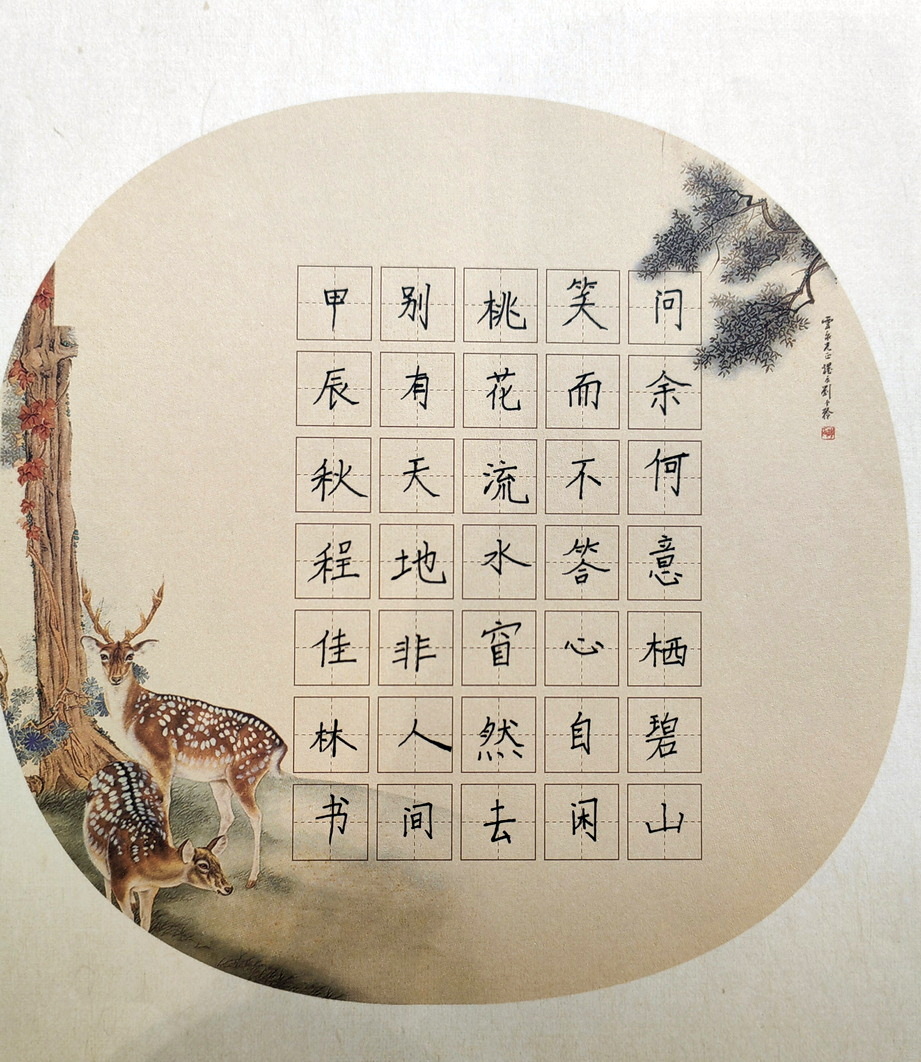 问余何意栖碧山
笑而不答心自闲
桃花流水窅然去
别有天地非人间
甲辰秋程佳林书